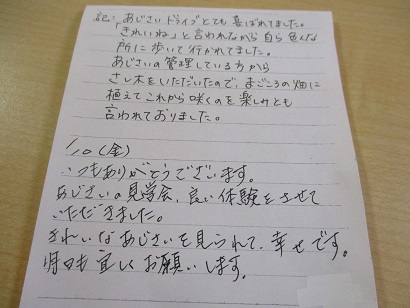 記:、あじさいドライブとても喜ばれてました。
「きれいね」と言われながら自ら色んな
所に歩いて行かれてました。
あじさいの管理している方から
さし木をいただいたので、まごころの畑に
植えてこれから咲くのを楽しみとも
言われておりました。
/10(金)
いつもありがとうございます。
あじさいの見学会、良い体験をさせて
いただきました。
きれいなあじさいを見られて、幸せです。
明日も宜しくお願いします。